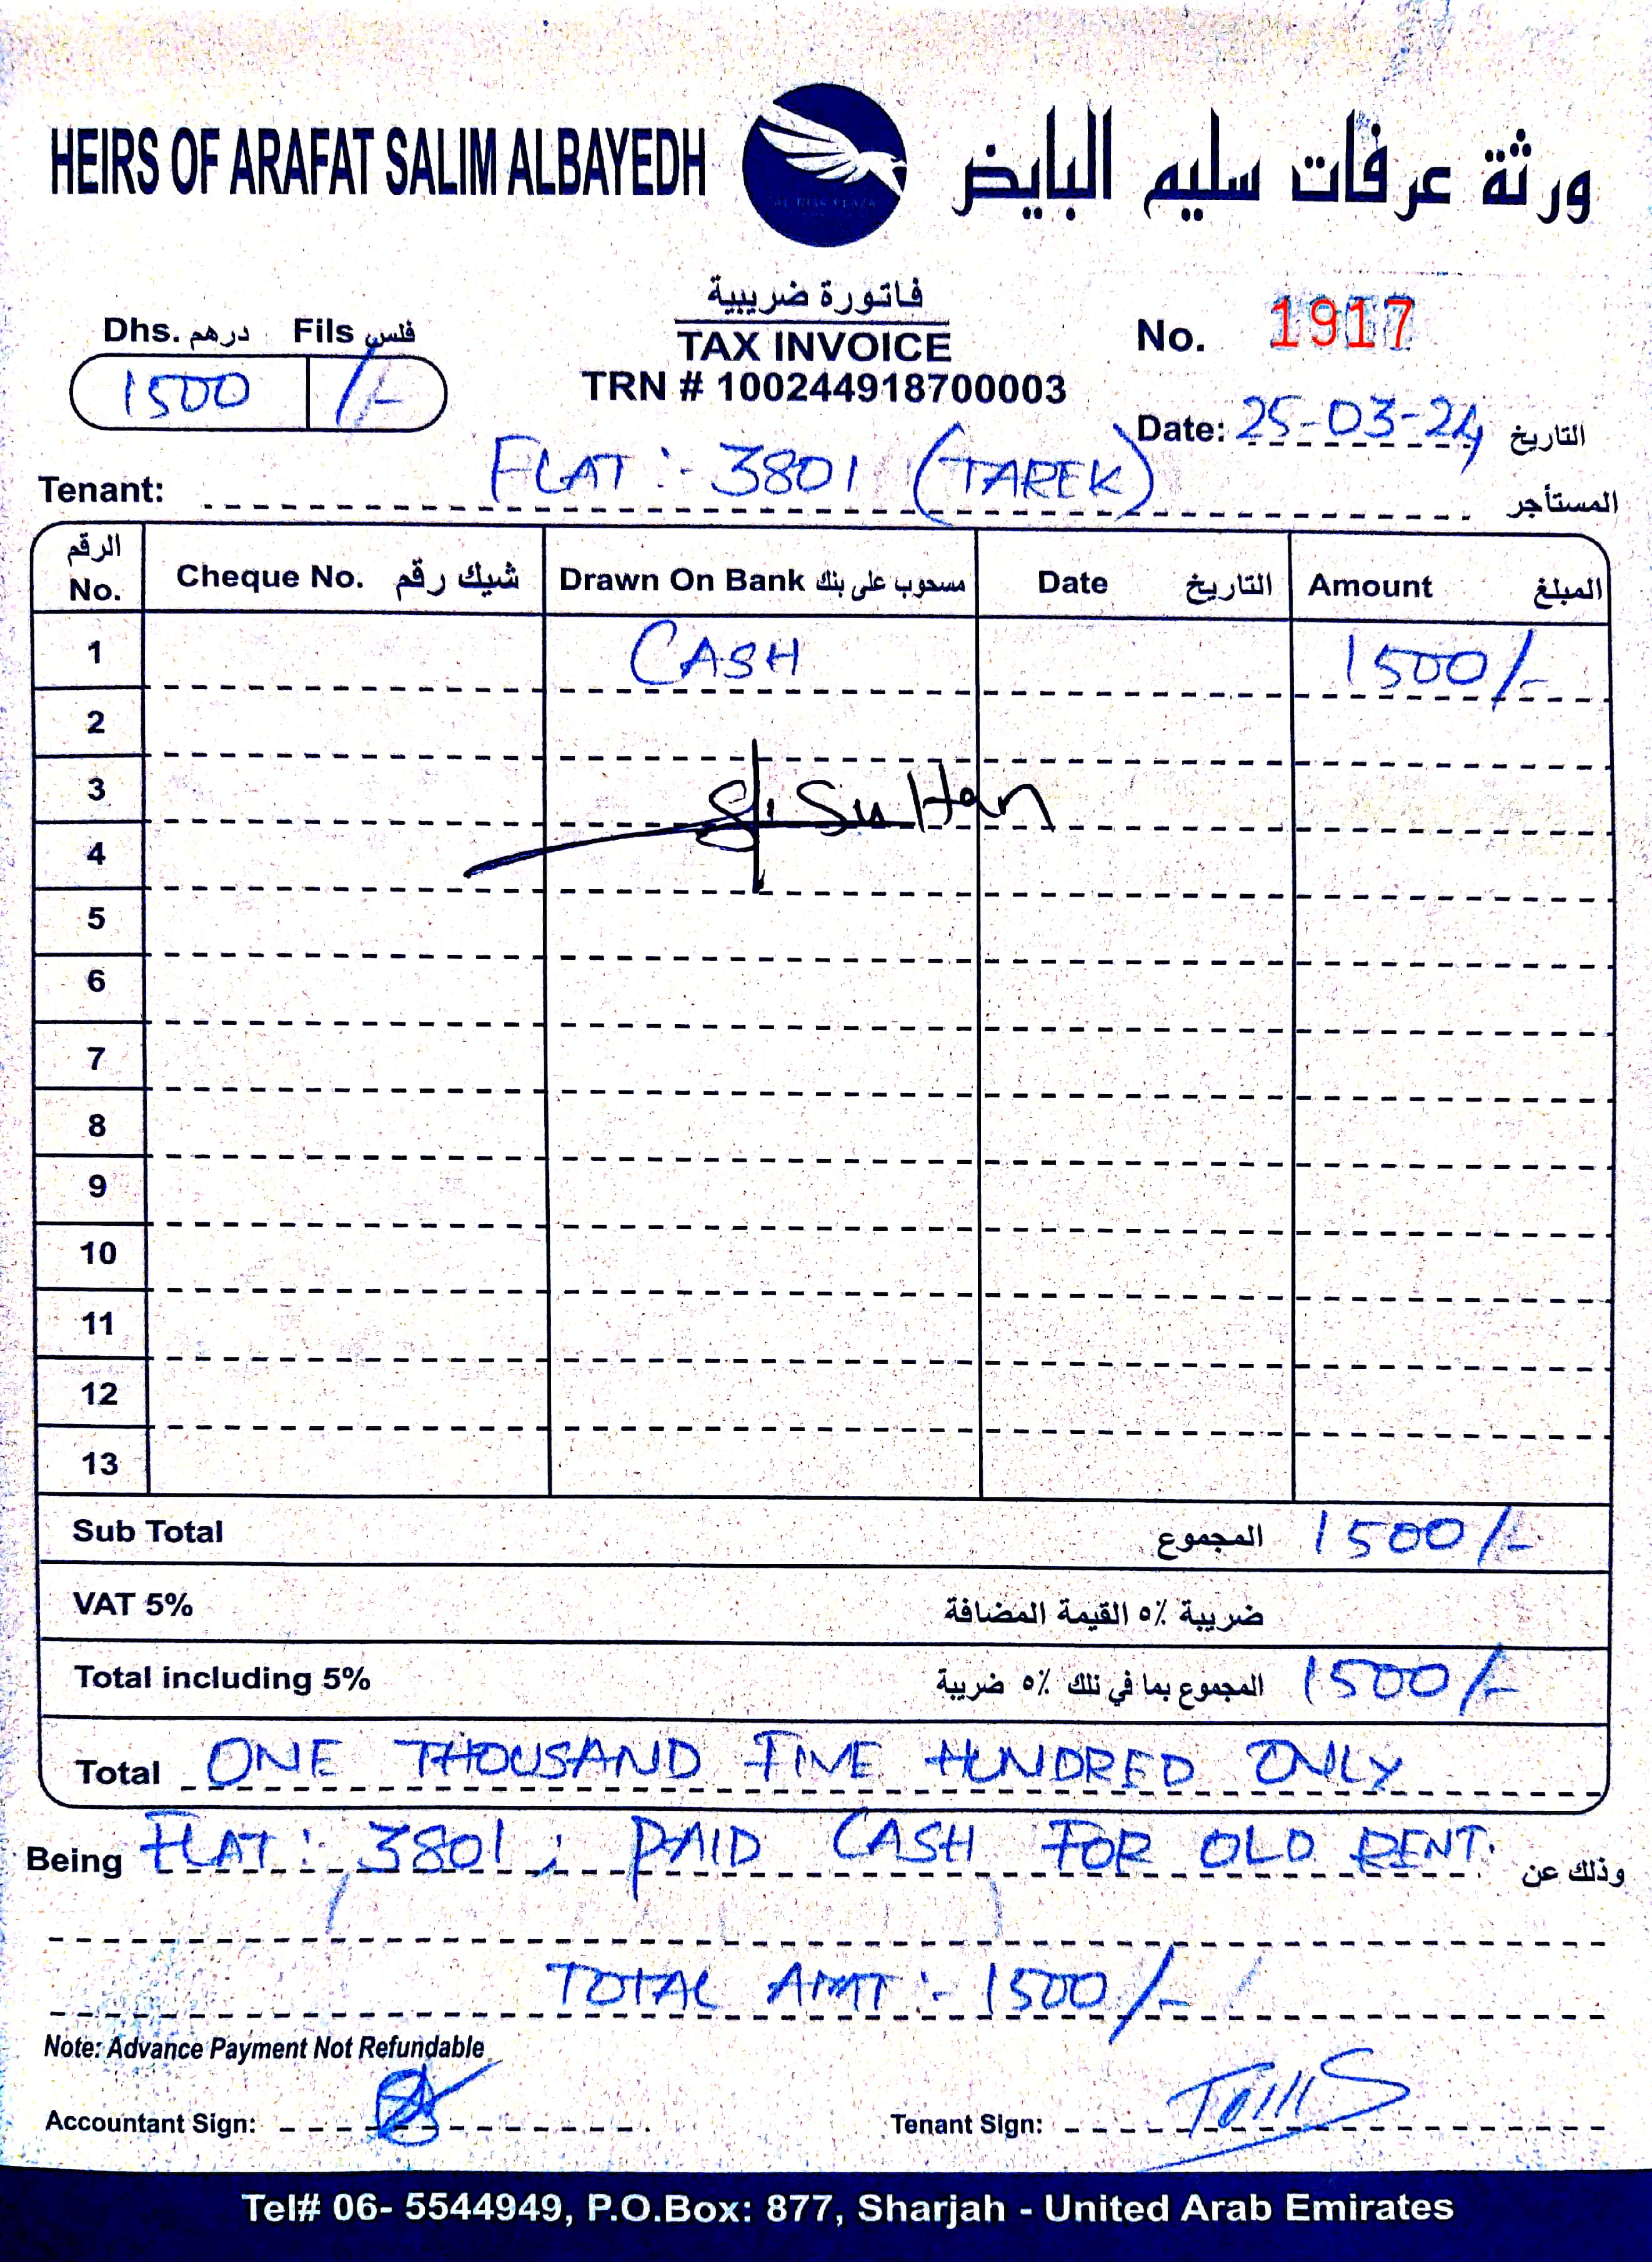 HEIRS OF ARAFAT SALIM ALBAYEDH ورثة عرفات سليم البايض
فاتورة ضريبية
TAX INVOICE
TRN # 100244918700003
Dhs. درهم Fils فلس
1500 /-
No. 1917
Date: 25-03-24 التاريخ
Tenant: FLAT :- 3801 (TAREK) المستأجر
الرقم No. Cheque No. شيك رقم Drawn On Bank مسحوب على بنك Date التاريخ Amount المبلغ
1 CASH 1500/-
2
3 Sultan
4
5
6
7
8
9
10
11
12
13
Sub Total المجموع 1500/-
VAT 5% ضريبة ٥٪ القيمة المضافة
Total including 5% المجموع بما في تلك ٥٪ ضريبة 1500/-
Total ONE THOUSAND FIVE HUNDRED ONLY
Being FLAT :- 3801 ; PAID CASH FOR OLD RENT. وذلك عن
TOTAL AMT :- 1500/-
Note: Advance Payment Not Refundable
Accountant Sign: Tenant Sign:
Tel# 06- 5544949, P.O.Box: 877, Sharjah - United Arab Emirates